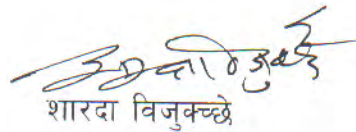 शारदा विजुक्च्छे